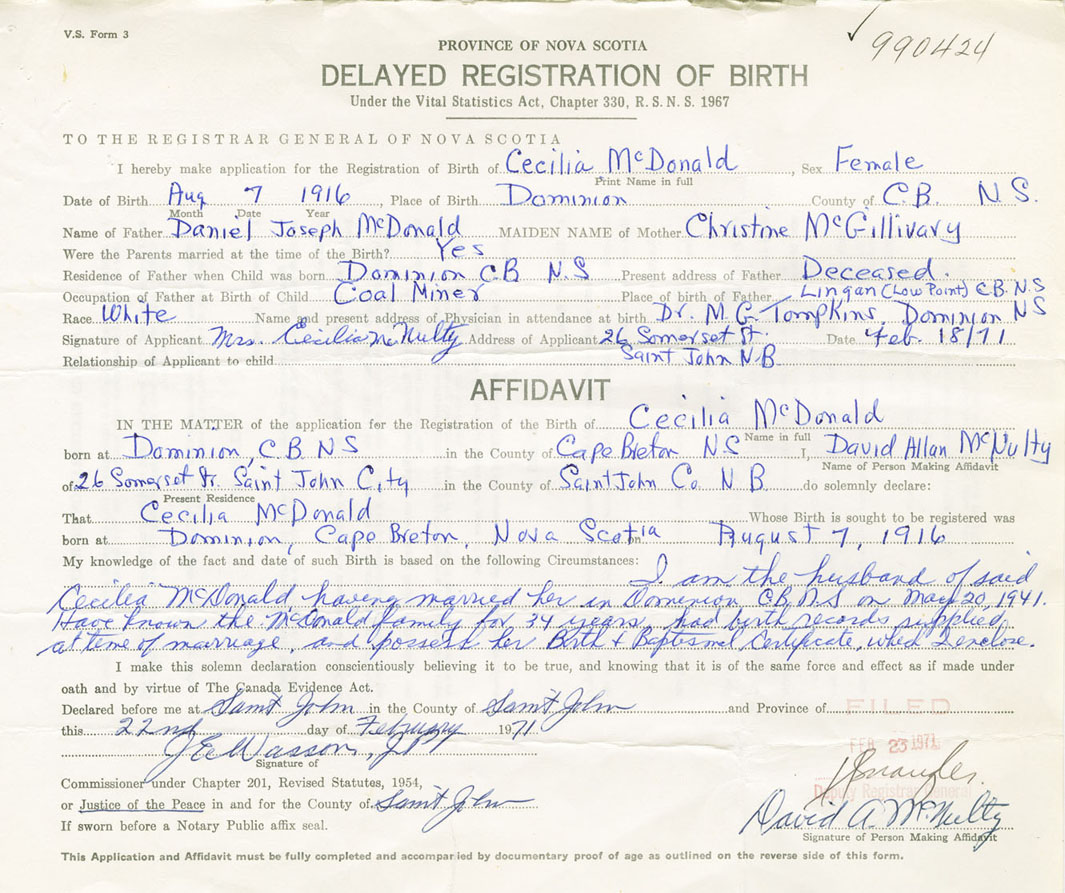 V.S. Form 3
990424
PROVINCE OF NOVA SCOTIA
DELAYED REGISTRATION OF BIRTH
Under the Vital Statistics Act, Chapter 330, R. S. N. S. 1967
TO THE REGISTRAR GENERAL OF NOVA SCOTIA
I hereby make application for the Registration of Birth of Cecilia McDonald, Sex Female
Print Name in full
Date of Birth Aug 7 1916, Place of Birth Dominion County of C.B. N.S.
Month Date Year
Name of Father Daniel Joseph McDonald MAIDEN NAME of Mother Christine McGillivary
Were the Parents married at the time of the Birth? Yes
Residence of Father when Child was born Dominion C.B N.S Present address of Father Deceased.
Occupation of Father at Birth of Child Coal Miner Place of birth of Father Lingan (Low Point) C.B. N.S
Race White Name and present address of Physician in attendance at birth Dr. M. G. Tompkins, Dominion NS
Signature of Applicant Mrs. Cecilia McNulty Address of Applicant 26 Somerset St. Date Feb. 18/71
Saint John N.B
Relationship of Applicant to child
AFFIDAVIT
IN THE MATTER of the application fer the Registration of the Birth of Cecilia McDonald
Name in full
born at Dominion, C.B. N S in the County of Cape Breton N.S I, David Allan McNulty
Name of Person Making Affidavit
of 26 Somerset St. Saint John City in the County of Saint John Co. N B do solemnly declare:
Present Residence
That Cecilia McDonald Whose Birth is sought to be registered was
born at Dominion, Cape Breton, Nova Scotia in August 7, 1916
My knowledge of the fact and date of such Birth is based on the following Circumstances:
I am the husband of said
Cecilia McDonald having married her in Dominion C.B. N.S on May 20, 1941.
Have known the McDonald family for 34 years, had birth records supplied
at time of marriage, and possess her Birth & Baptismal Certificate, which I enclose.
I make this solemn declaration conscientiously believing it to be true, and knowing that it is of the same force and effect as if made under
oath and by virtue of The Canada Evidence Act.
Declared before me at Saint John in the County of Saint John and Province of
FILED
this 22nd day of February 1971
FEB 23 1971
J E Wasson, JP
Signature of
Deputy Registrar General
Commissioner under Chapter 201, Revised Statutes, 1954,
or Justice of the Peace in and for the County of Saint John
David A. McNulty
If sworn before a Notary Public affix seal.
Signature of Person Making Affidavit
This Application and Affidavit must be fully completed and accompanied by documentary proof of age as outlined on the reverse side of this form.